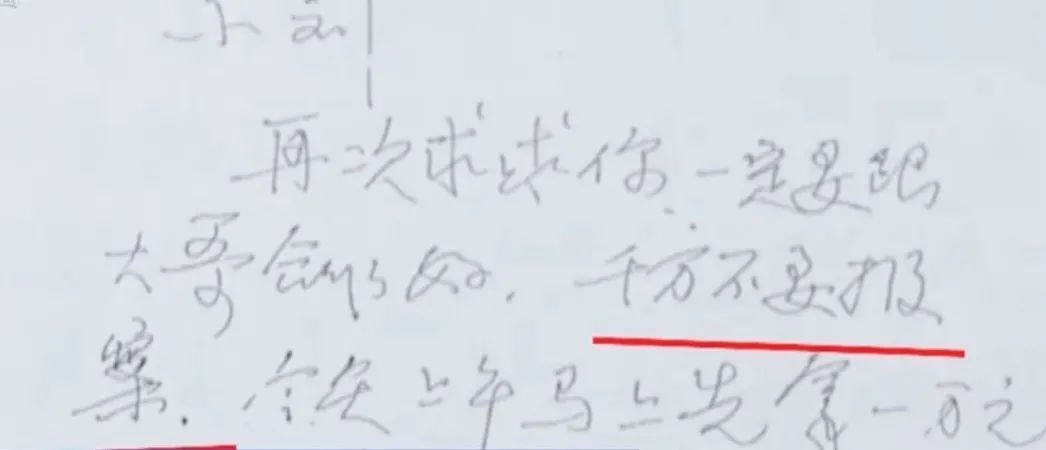 小刘
再次求求你一定要跟
大哥合作好，千万不要报
案，今天上午马上先拿一万元